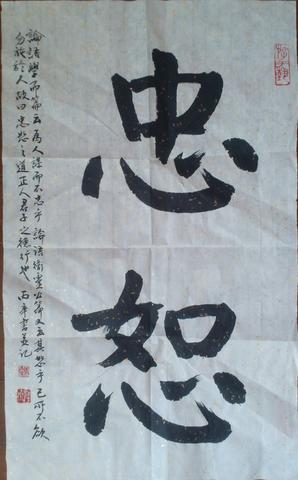 忠恕
論語學而篇云為人謀而不忠乎 論語衛靈公篇又云其恕乎 己所不欲
勿施於人 故曰忠恕之道正人君子之德行也 書並記